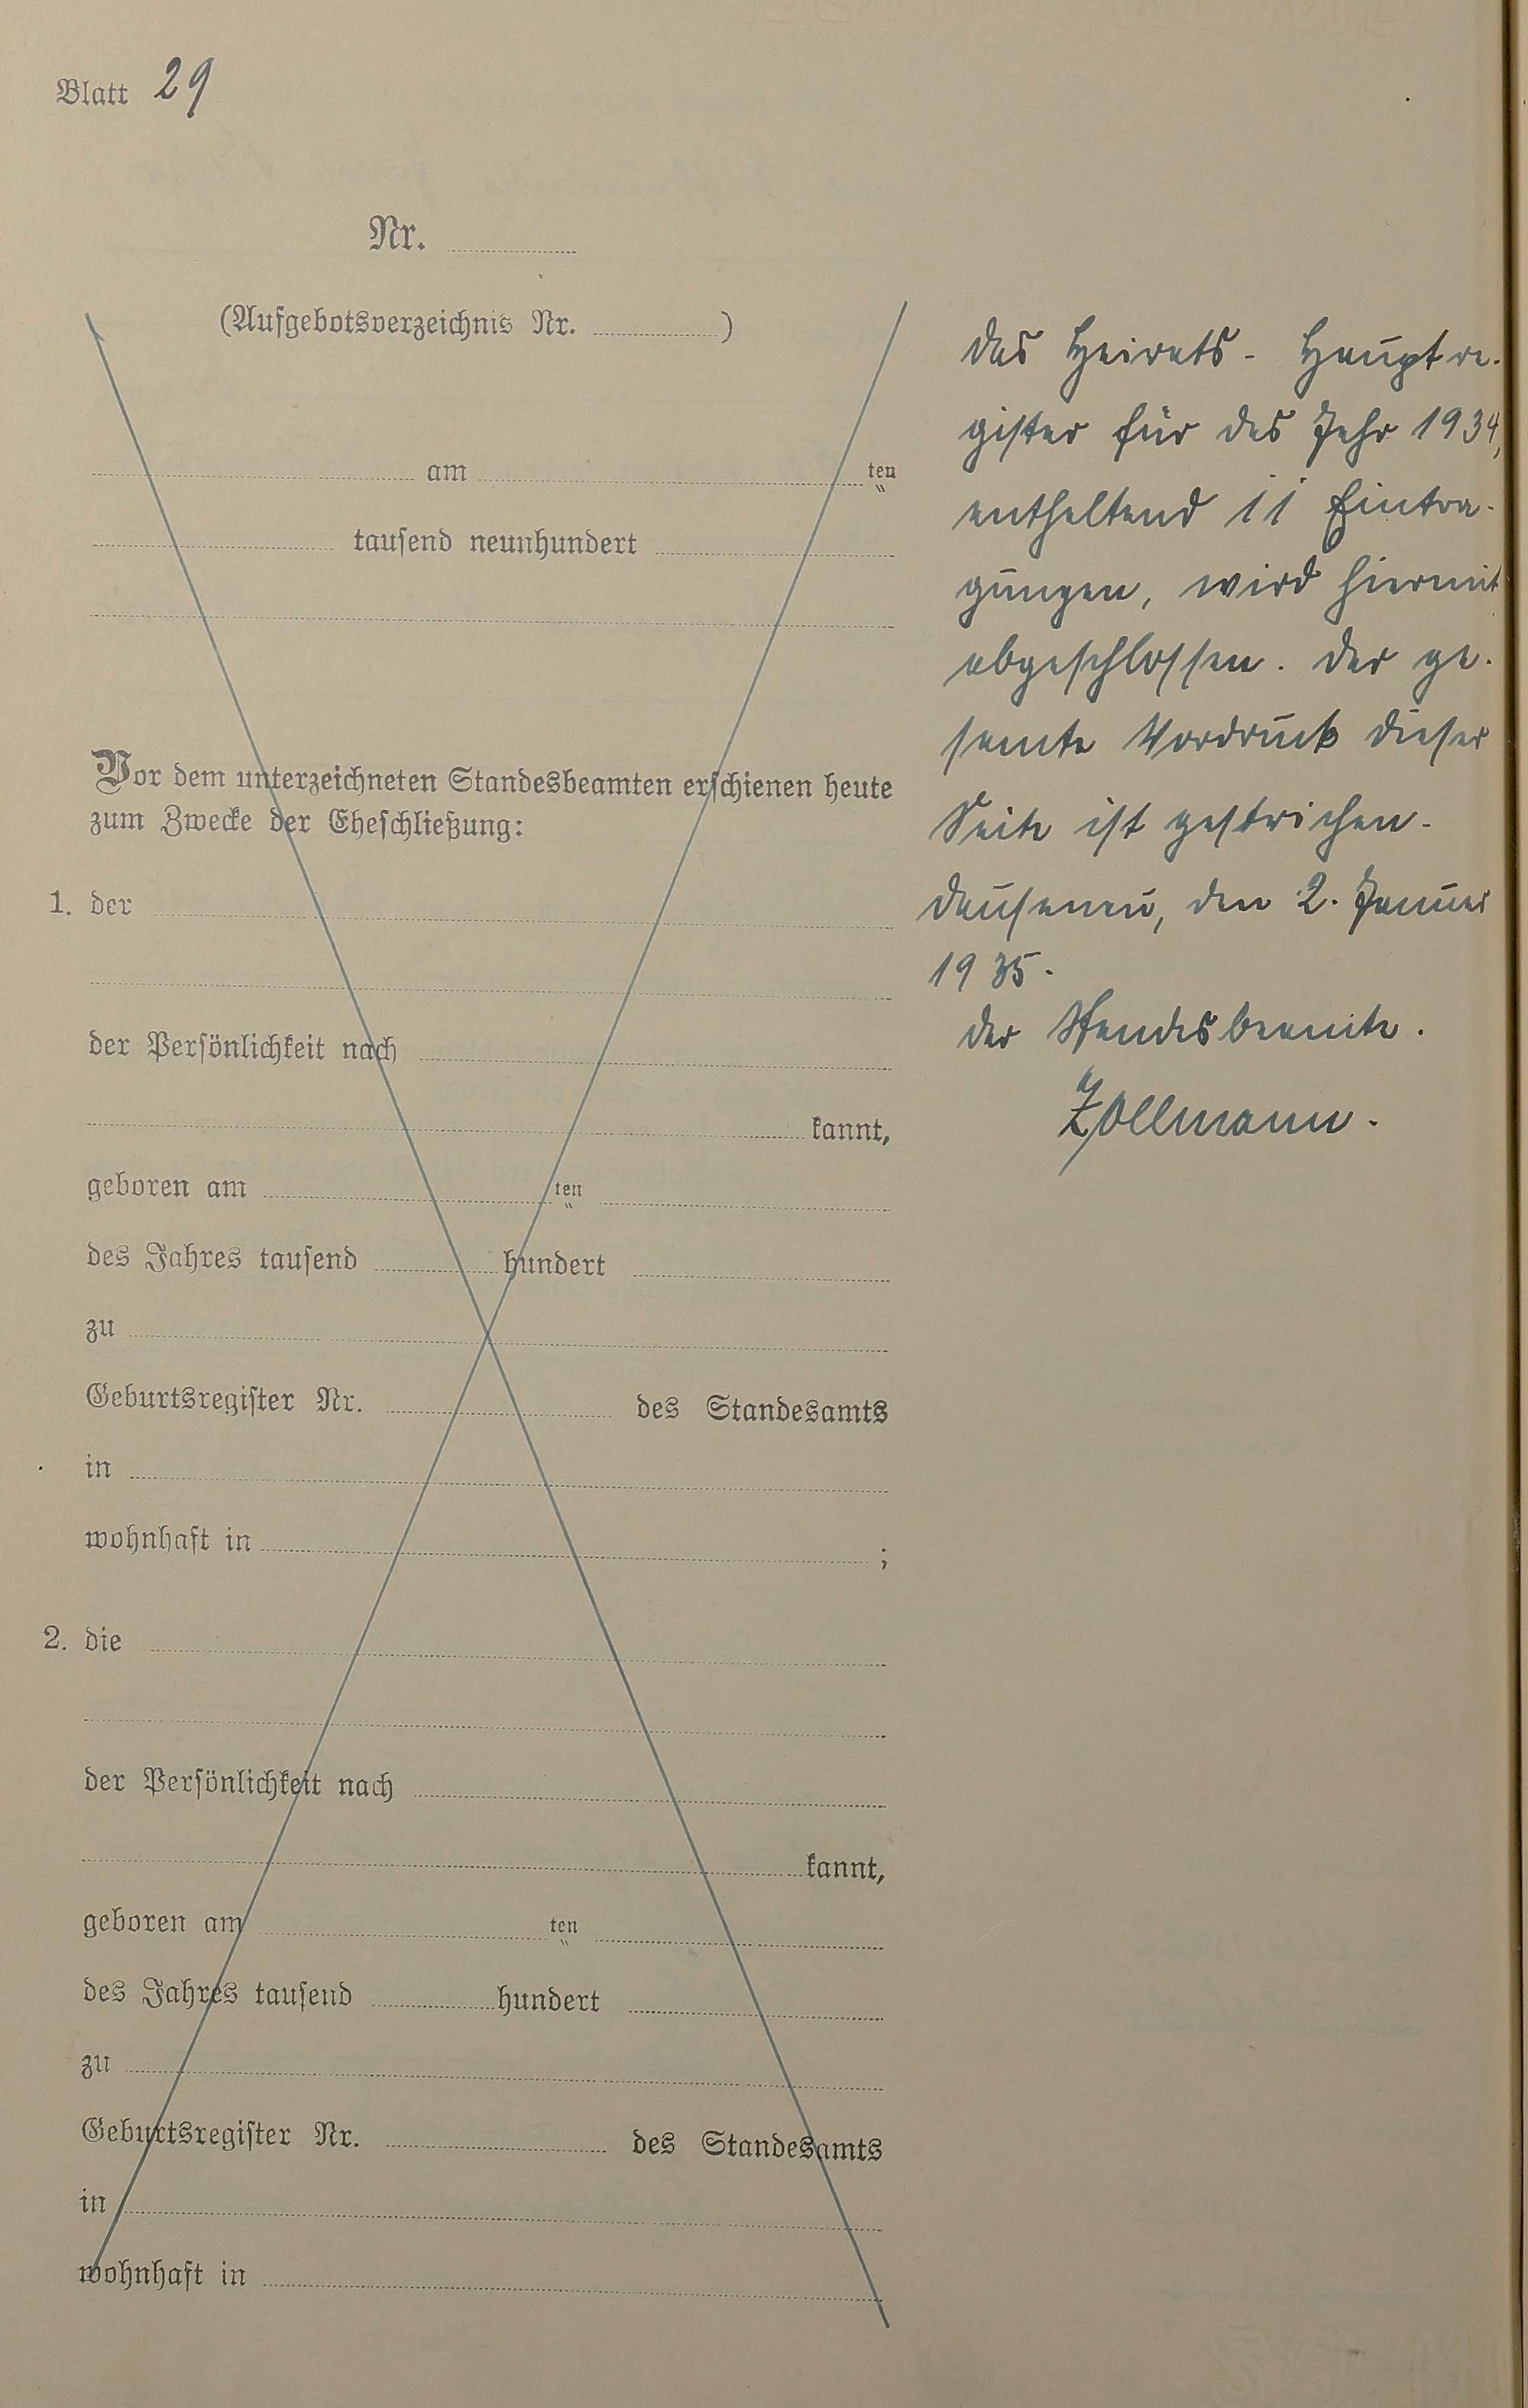 Blatt 29
Nr.
(Aufgebotsverzeichnis Nr. )
am ten
tausend neunhundert
Vor dem unterzeichneten Standesbeamten erschienen heute
zum Zwecke der Eheschließung:
1. der
der Persönlichkeit nach
kannt,
geboren am ten
des Jahres tausend hundert
zu
Geburtsregister Nr. des Standesamts
in
wohnhaft in ;
2. die
der Persönlichkeit nach
kannt,
geboren am ten
des Jahres tausend hundert
zu
Geburtsregister Nr. des Standesamts
in
wohnhaft in
Das Heirats- Hauptre-
gister für das Jahr 1934,
enthaltend 11 Eintra-
gungen, wird hiermit
abgeschlossen. Der ge-
samte Vordruck dieser
Seite ist gestrichen.
Dausenau, den 2. Januar
1935.
Der Standesbeamte.
Zollmann.